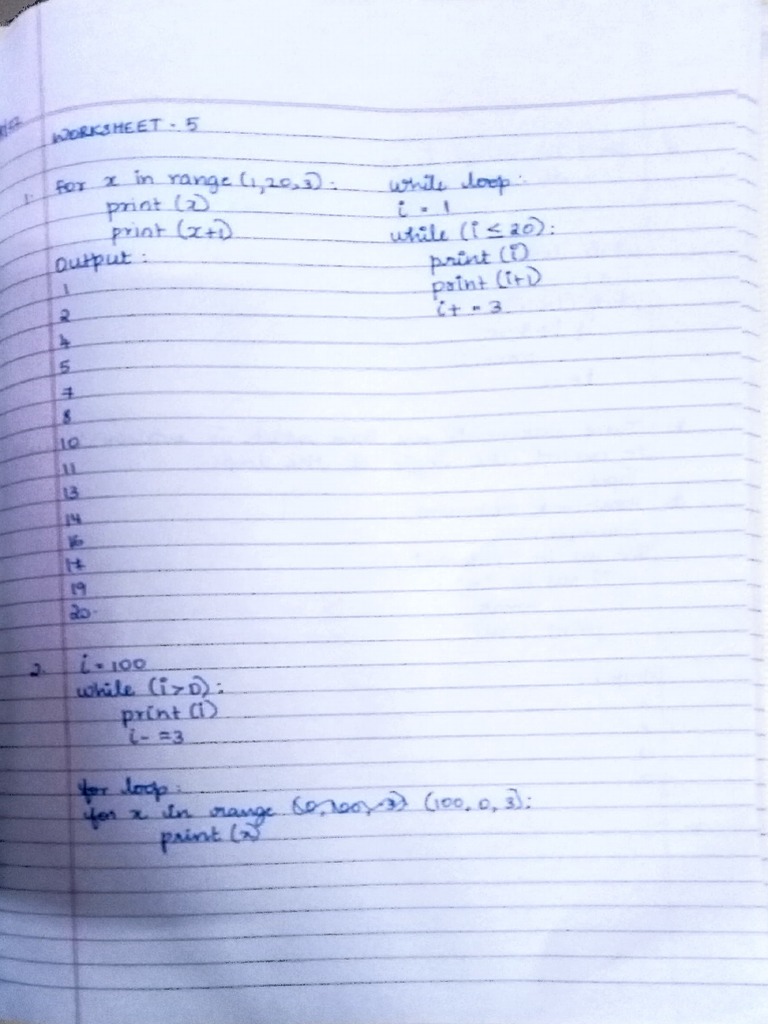 WORKSHEET - 5
1. for x in range (1,20,3):
print (x)
print (x+1)
Output:
1
2
4
5
7
8
10
11
13
14
16
17
19
20
while loop:
i = 1
while (i ≤ 20):
print (i)
print (i+1)
i+ = 3
2. i = 100
while (i>0):
print (i)
i- =3
for loop:
for x in range (0,100,-3) (100,0,3):
print (x)